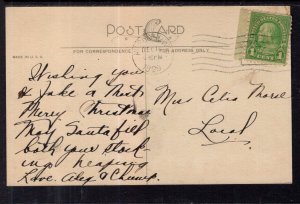 POST CARD
FOR CORRESPONDENCE
FOR ADDRESS ONLY
MADE IN U.S.A.
1 CENT 1
Wishing you
& Jake a most
Merry Christmas
May Santa fill
both your stock
ings heaping
Love. Alex &
Miss Celia
Local